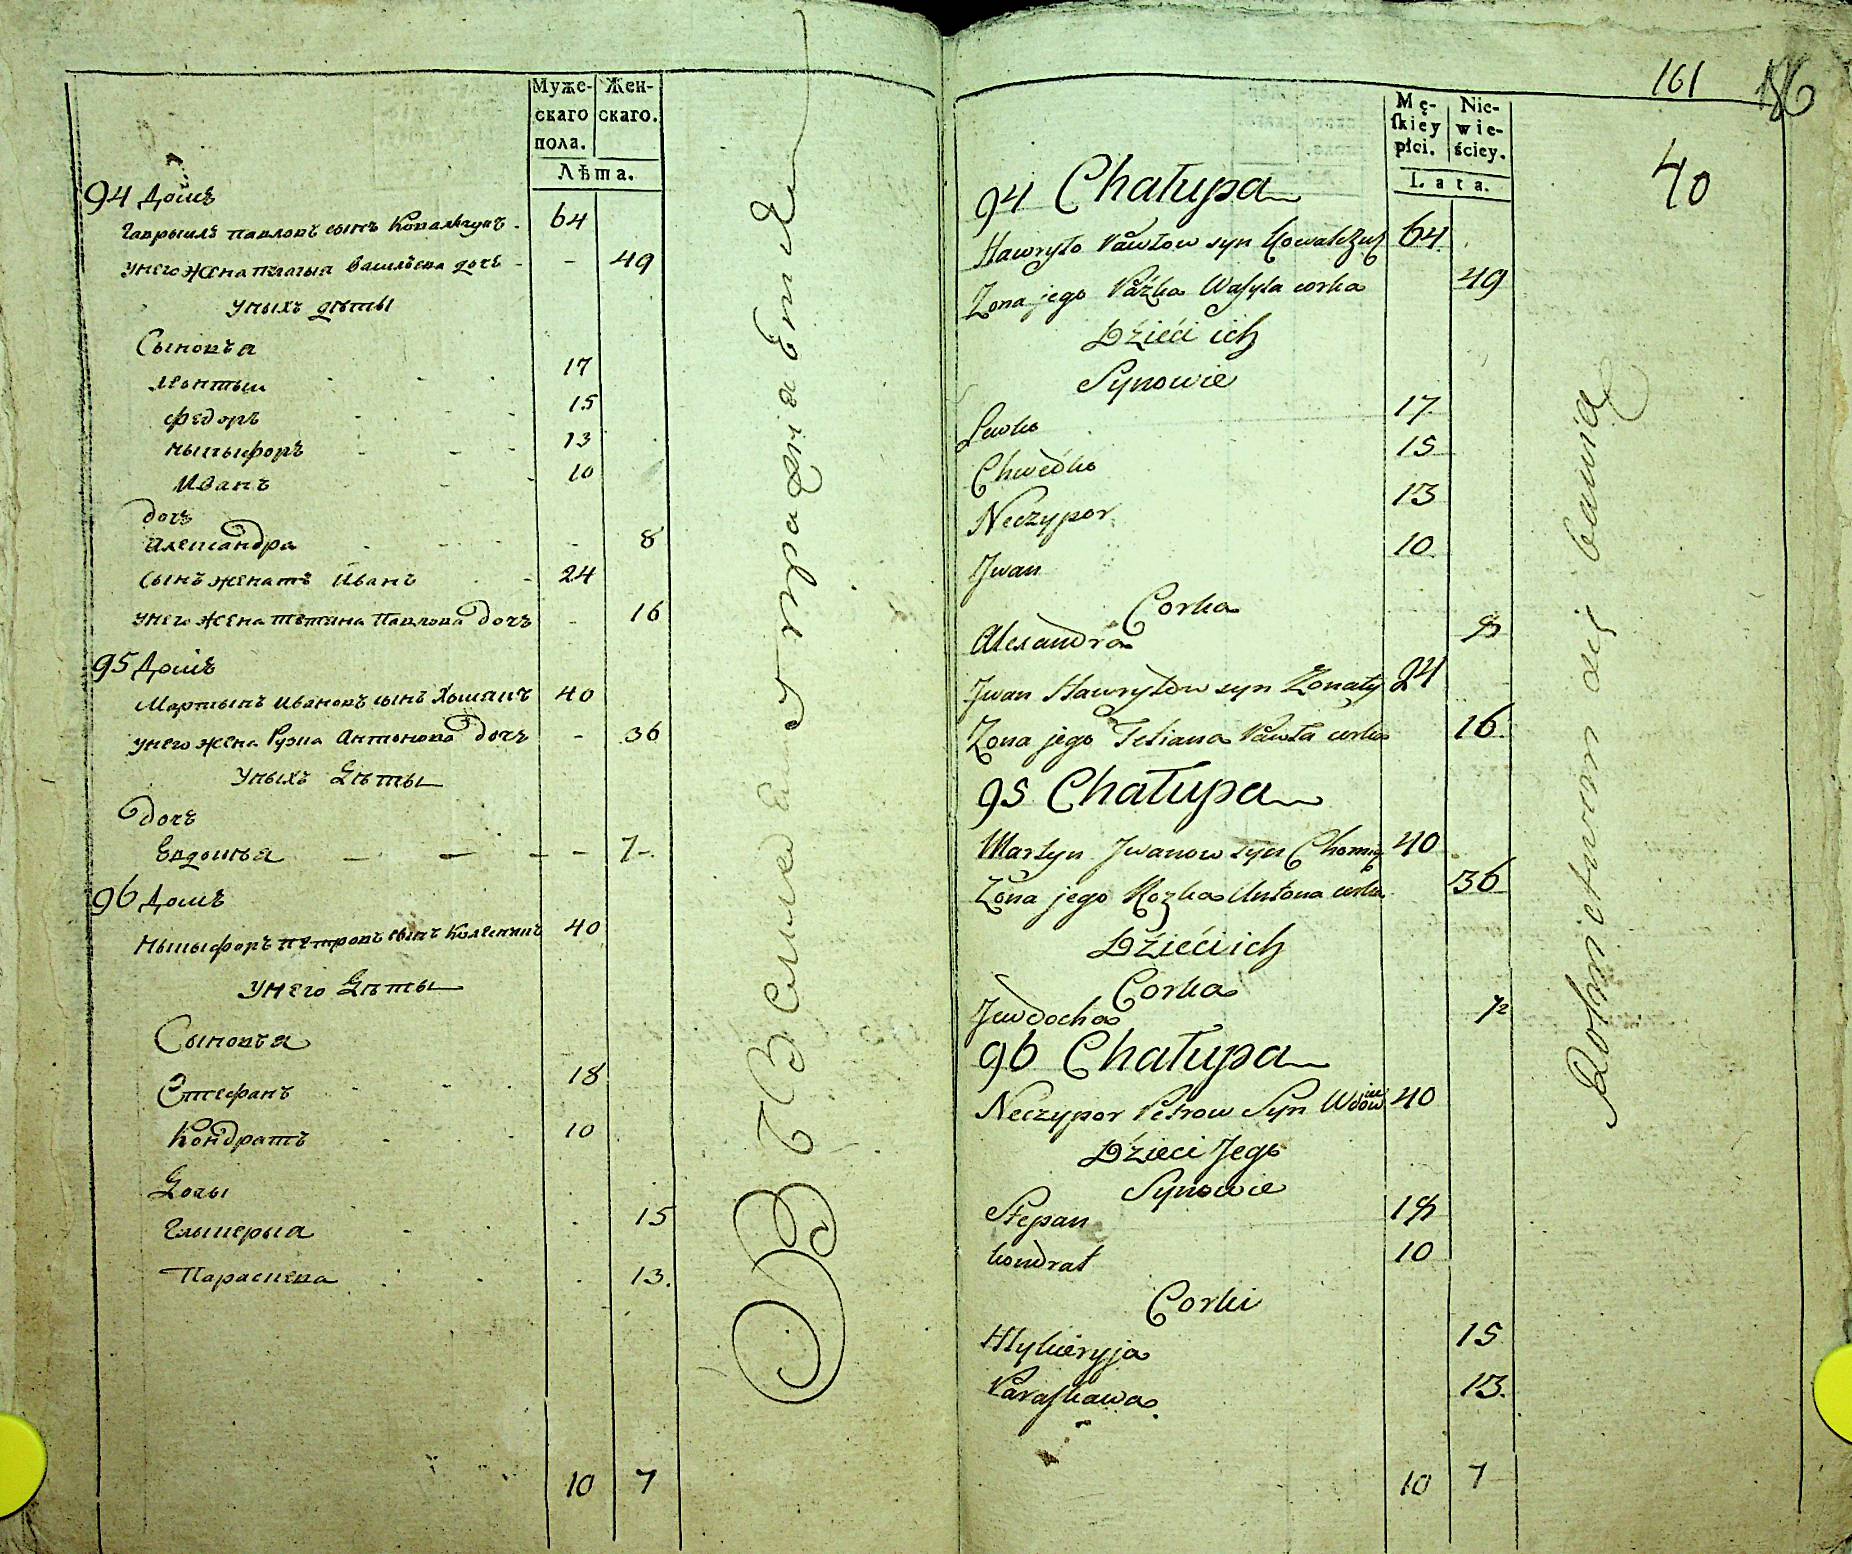 Муже-
скаго
пола.
Жен-
скаго.
Лѣта.
94 Домъ
Гаврыилъ павловъ сынъ Ковальчукъ 64
унего жена пилагыя василѣева дочь - 49
уныхъ дѣты
Сыновъя
леонтыи 17
федоръ 15
ныкыфоръ 13
Иванъ 10
дочь
Александра 8
сынъ женатъ Иванъ 24
унего жена тетяна Павлова дочъ - 16
95 Домъ
Мартынъ Ивановъ сынъ Хомикъ 40
унего жена Рузка Антонова дочъ - 36
уныхъ Дѣты
дочъ
Евдокѣя - 7-
96 Домъ
Ныкыфоръ петровъ сынъ Колесникъ 40
унего Дѣты
Сыновъя
Стефанъ 18
Кондратъ 10
Дочы
Глыкерыя 15
Параскева 13.
10 7
ВЗемледелиѣ
161
40
Mę-
skiey
płci.
Nie-
wie-
ściey.
Lata.
94 Chałupa
Hawryło Pawłow syn Kowalczuk 64
Zona jego Pazka Wasyla corka 49
Dzieci ich
Synowie
Lewko 17
Chwedko 15
Neczypor 13
Jwan 10
Corka
Alexandra 8
Jwan Hawryłow syn Zonaty 24
Zona jego Tetiana Pawła corka 16
95 Chałupa
Martyn Jwanow syn Chomik 40
Zona jego Rozka Antona corka 36
Dzieci ich
Corka
Jewdocha 7
96 Chałupa
Neczypor Petrow Syn Wdowiec 40
Dzieci Jego
Synowie
Stepan 18
kondrat 10
Corki
Hlykieryja 15
Paraskawa 13.
10 7
Rolnictwem się bawią